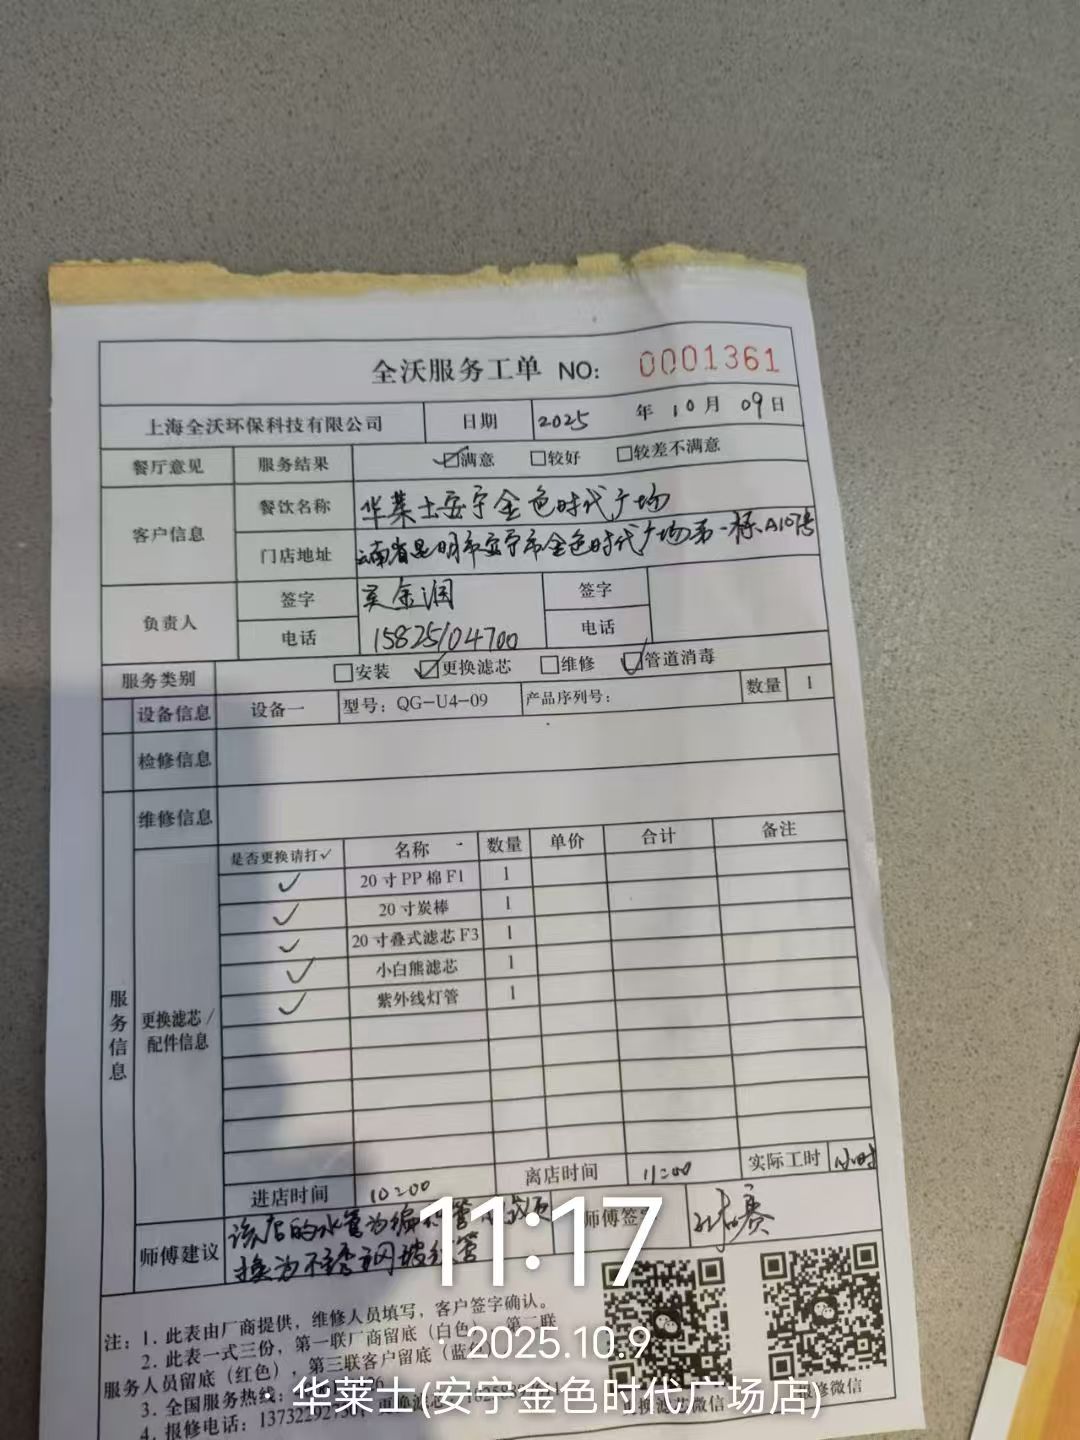 全沃服务工单 NO: 0001361
上海全沃环保科技有限公司 日期 2025 年 10 月 09 日
餐厅意见 服务结果 ☑满意 □较好 □较差不满意
客户信息 餐饮名称 华莱士安宁金色时代广场
门店地址 云南省昆明市安宁市金色时代广场第一栋A107号
负责人 签字 金润 签字
电话 15825104700 电话
服务类别 □安装 ☑更换滤芯 □维修 ☑管道消毒
设备信息 设备一 型号：QG-U4-09 产品序列号： 数量 1
检修信息
维修信息
是否更换请打✓ 名称 数量 单价 合计 备注
✓ 20寸PP棉F1 1
✓ 20寸炭棒 1
✓ 20寸叠式滤芯F3 1
✓ 小白熊滤芯 1
✓ 紫外线灯管 1
服务信息
更换滤芯/
配件信息
进店时间 10:00 离店时间 11:00 实际工时 1小时
师傅建议 该店的水管为编织管
换为不锈钢波纹管
师傅签
11:17
2025.10.9
华莱士(安宁金色时代广场店)
注：1. 此表由厂商提供，维修人员填写，客户签字确认。
2. 此表一式三份，第一联厂商留底（白色），第二联
服务人员留底（红色），第三联客户留底（蓝
3. 全国服务热线：
4. 报修电话：
微信 报修微信